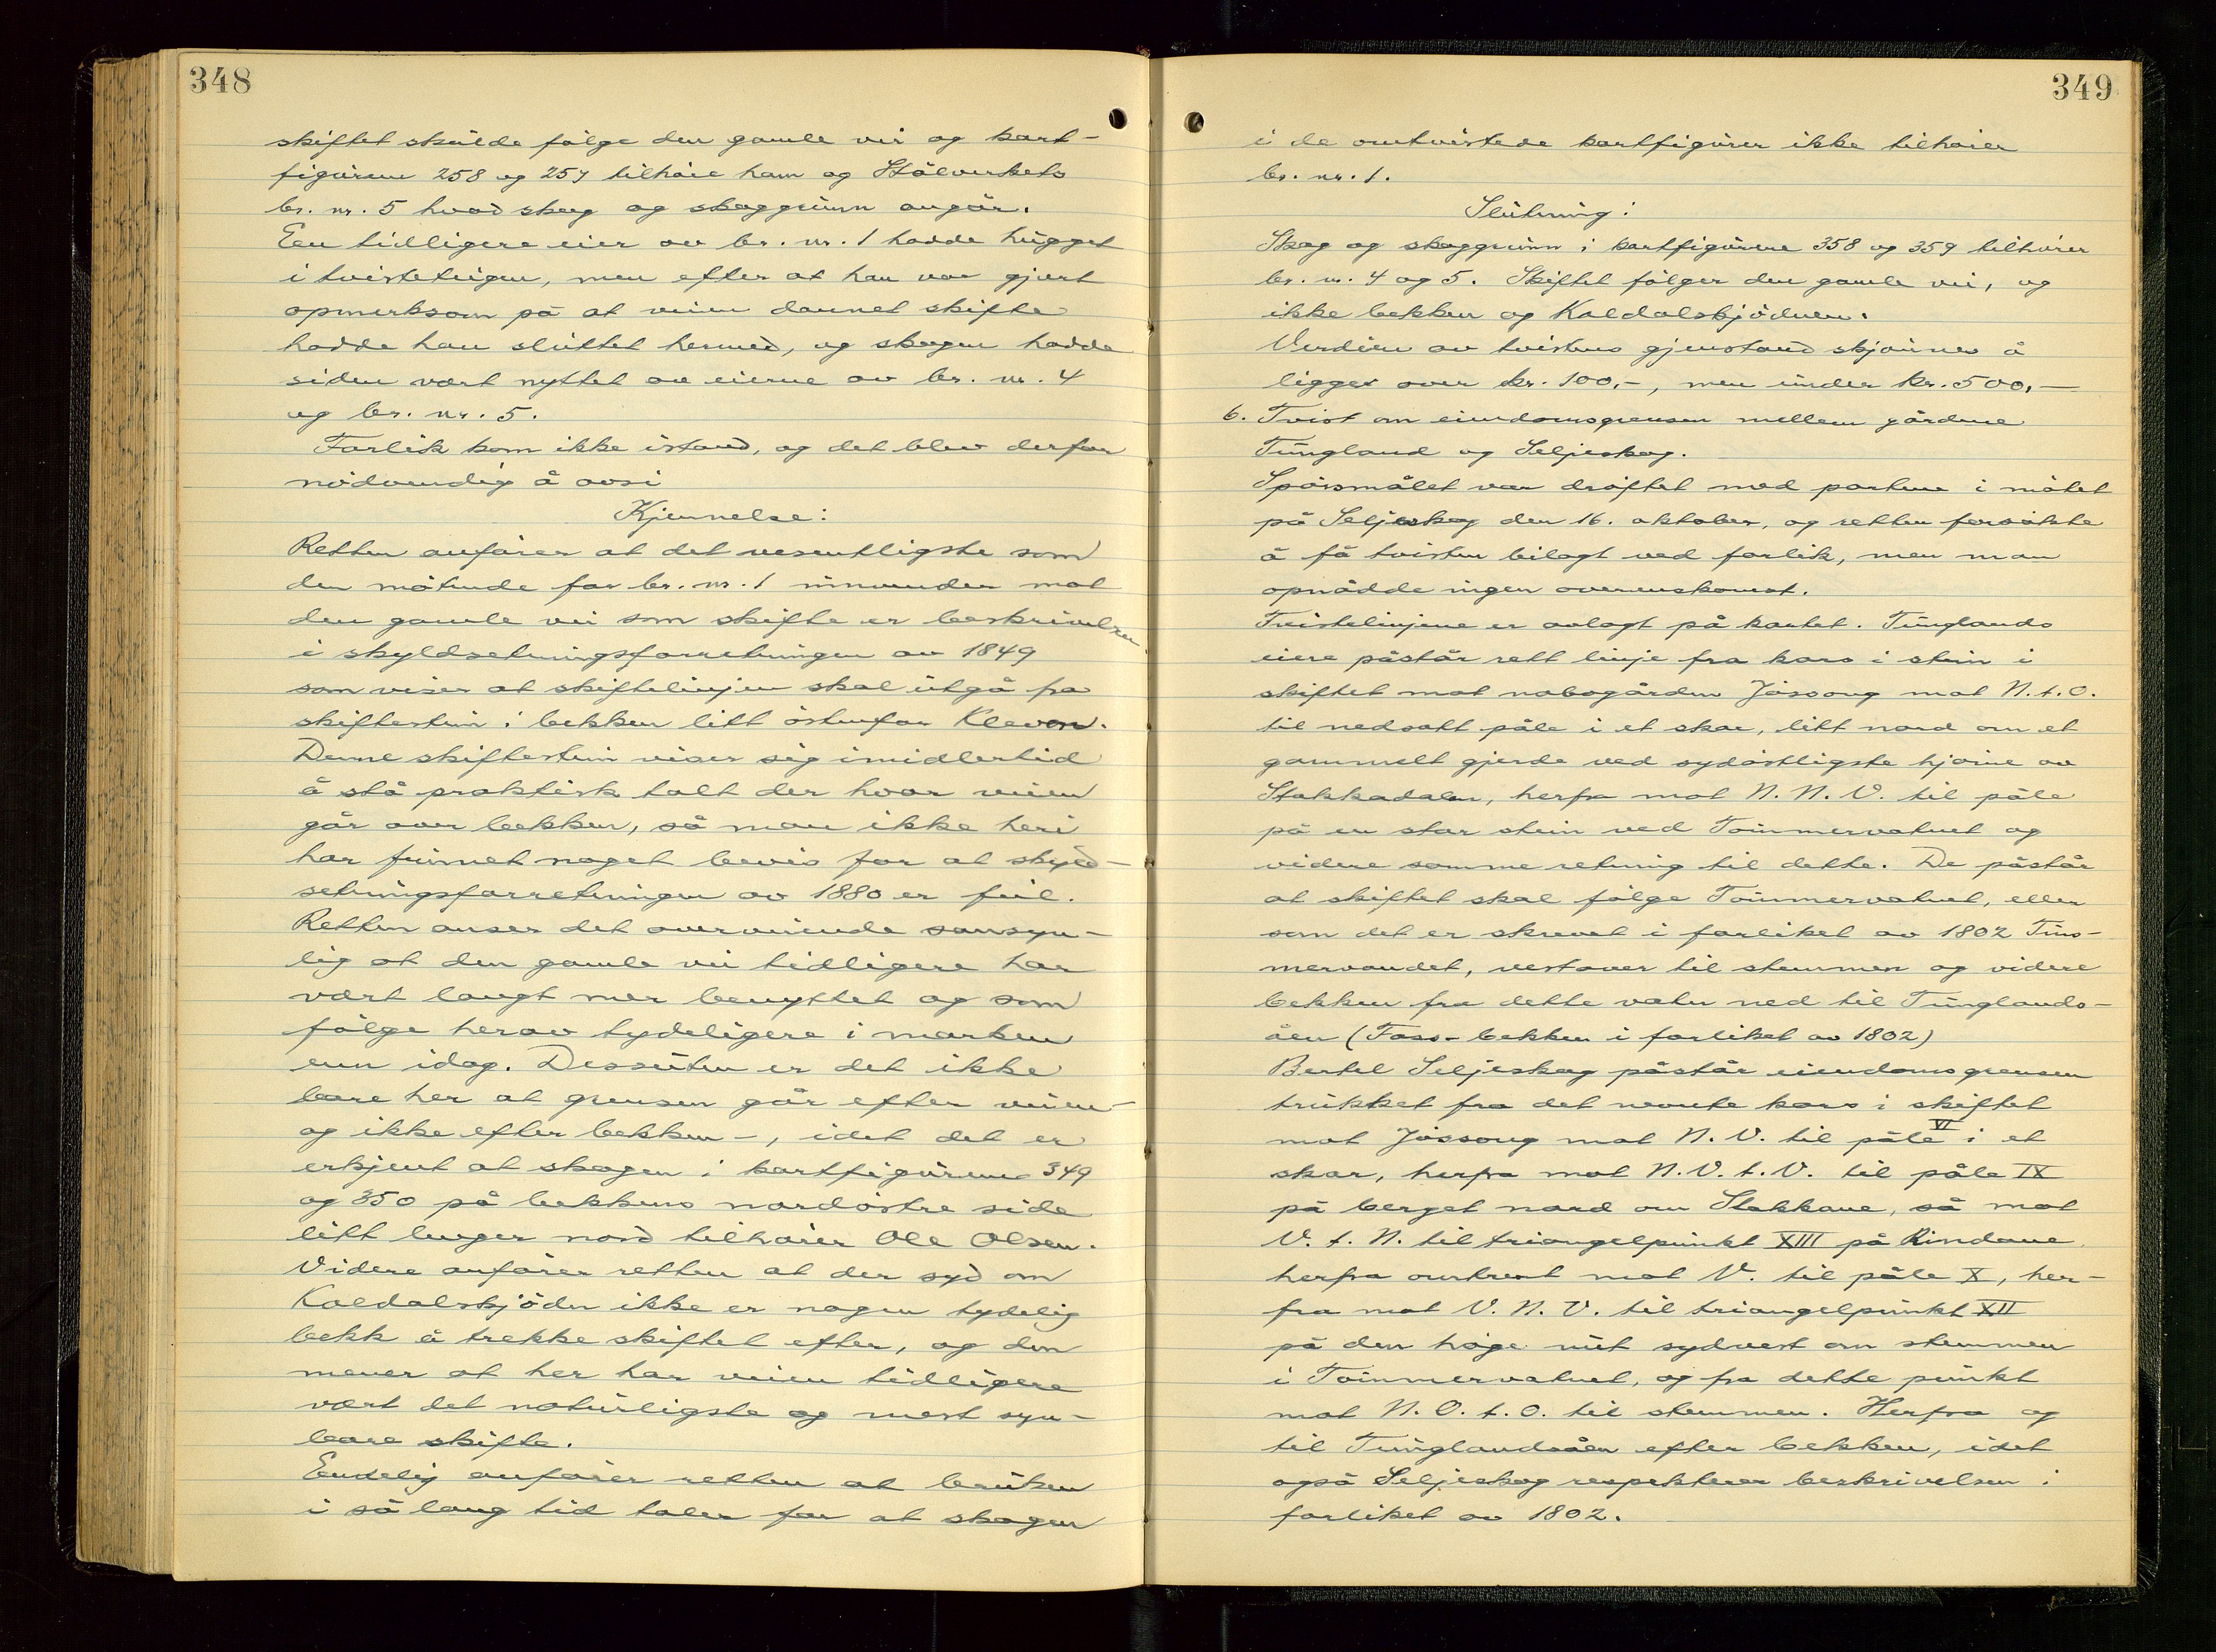 348
skiftet skulde følge den gamle vei og kart-
figurene 258 og 259 tilhøre ham og Stålverkets
br. nr. 5 hvad skog og skoggrunn angår.
Een tidligere eier av br. nr. 1 hadde hugget
i tvisteteigen, men efter at han var gjort
opmerksom på at veien dannet skifte
hadde han sluttet hermed, og skogen hadde
siden vært nyttet av eierne av br. nr. 4
og br. nr. 5.
Forlik kom ikke istand, og det blev derfor
nødvendig å avsi
Kjennelse:
Retten anfører at det vesentligste som
den møtende for br. nr. 1 innvender mot
den gamle vei som skifte er beskrivelsen
i skyldsetningsforretningen av 1849
som viser at skiftelinjen skal utgå fra
skiftestein i bekken litt østenfor Kleven.
Denne skiftestein viser sig imidlertid
å stå praktisk talt der hvor veien
går over bekken, så man ikke heri
har funnet noget bevis for at skyld-
setningsforretningen av 1880 er feil.
Retten anser det overveiende sansyn-
lig at den gamle vei tidligere har
vært langt mer benyttet og som
følge herav tydeligere i marken
enn idag. Dessuten er det ikke
bare her at grensen går efter veien-
og ikke efter bekken -, idet det er
erkjent at skogen i kartfigurene 349
og 350 på bekkens nordøstre side
litt lenger nord tilhører Ole Olsen.
Videre anfører retten at der syd om
Kaldalskjødn ikke er nogen tydelig
bekk å trekke skiftet efter, og den
mener at her har veien tidligere
vært det naturligste og mest syn-
bare skifte.
Eendelig anfører retten at bruken
i så lang tid taler for at skogen
349
i de omtvistede kartfigurer ikke tilhører
br. nr. 1.
Slutning:
Skog og skoggrunn i kartfigurene 358 og 359 tilhører
br. nr. 4 og 5. Skiftet følger den gamle vei, og
ikke bekken og Kaldalskjødnen.
Verdien av tvistens gjenstand skjønnes å
ligger over kr. 100,-, men under kr. 500,-
6. Tvist om eiendomsgrensen mellem gårdene
Tungland og Seljeskog.
Spørsmålet var drøftet med partene i møtet
på Seljeskog den 16. oktober, og retten forsøkte
å få tvisten bilagt ved forlik, men man
opnådde ingen overenskomst.
Tvistelinjene er avlagt på kartet. Tunglands
eiere påstår rett linje fra kors i stein i
skiftet mot nabogården Jøssong mot N.t.O.
til nedsatt påle i et skar, litt nord om et
gammelt gjerde ved sydøstligste hjørne av
Stakkadalen, herfra mot N. N. V. til påle
på en stor stein ved Tommervatnet og
videre samme retning til dette. De påstår
at skiftet skal følge Tommervatnet, eller
som det er skrevet i forliket av 1802 Tøm-
mervandet, vestover til stemmen og videre
bekken fra dette vatn ned til Tunglands-
åen (Foss-bekken i forliket av 1802)
Bertel Seljeskog påstår eiendomsgrensen
trukket fra det nevnte kors i skiftet
mot Jøssong mot N. V. til påle VI i et
skar, herfra mot N.V.t.V. til påle IX
på berget nord om Stakkane, så mot
V. t. N. til triangelpunkt XIII på Rindane,
herfra omtrent mot V. til påle X, her-
fra mot V. N. V. til triangelpunkt XII
på den høge nut sydvest om stemmen
i Tommervatnet, og fra dette punkt
mot N. O. t. O. til stemmen. Herfra og
til Tunglandsåen efter bekken, idet
også Seljeskog respekterer beskrivelsen i
forliket av 1802.